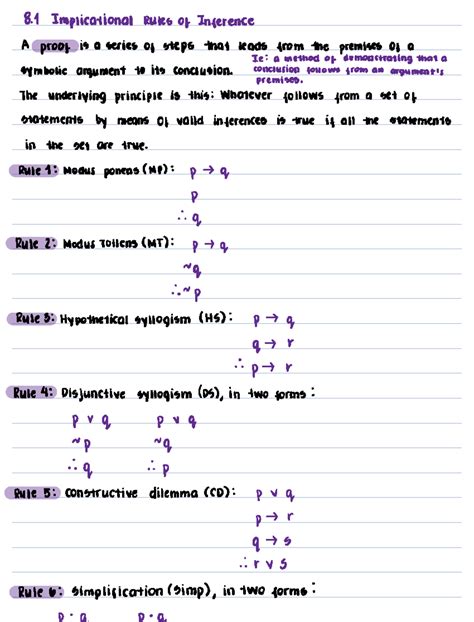 8.1 Implicational Rules of Inference
A proof is a series of steps that leads from the premises of a
symbolic argument to its conclusion.
Ie: a method of demonstrating that a
conclusion follows from an argument's
premises.
The underlying principle is this: Whatever follows from a set of
statements by means of valid inferences is true if all the statements
in the set are true.
Rule 1: Modus ponens (MP): p → q
p
∴ q
Rule 2: Modus Tollens (MT): p → q
~q
∴ ~p
Rule 3: Hypothetical syllogism (HS): p → q
q → r
∴ p → r
Rule 4: Disjunctive syllogism (DS), in two forms:
p v q p v q
~p ~q
∴ q ∴ p
Rule 5: Constructive dilemma (CD): p v q
p → r
q → s
∴ r v s
Rule 6: Simplification (Simp), in two forms:
p · q p · q